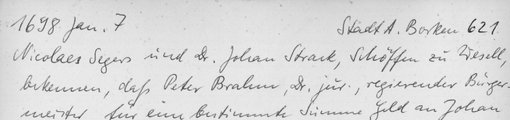 1698 Jan. 7 Stadt A. Borken 621.
Nicolaes Segers und Dr. Johan Strack, Schöffen zu Wesell,
bekennen, daß Peter Brahm, Dr. jur., regierender Bürger-
meister für eine bestimmte Summe Geld an Johan